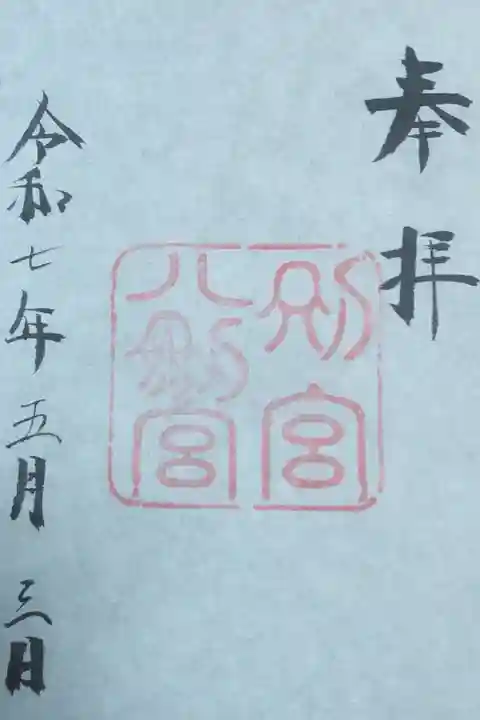 奉拝
別宮
八剱宮
令和七年五月三日